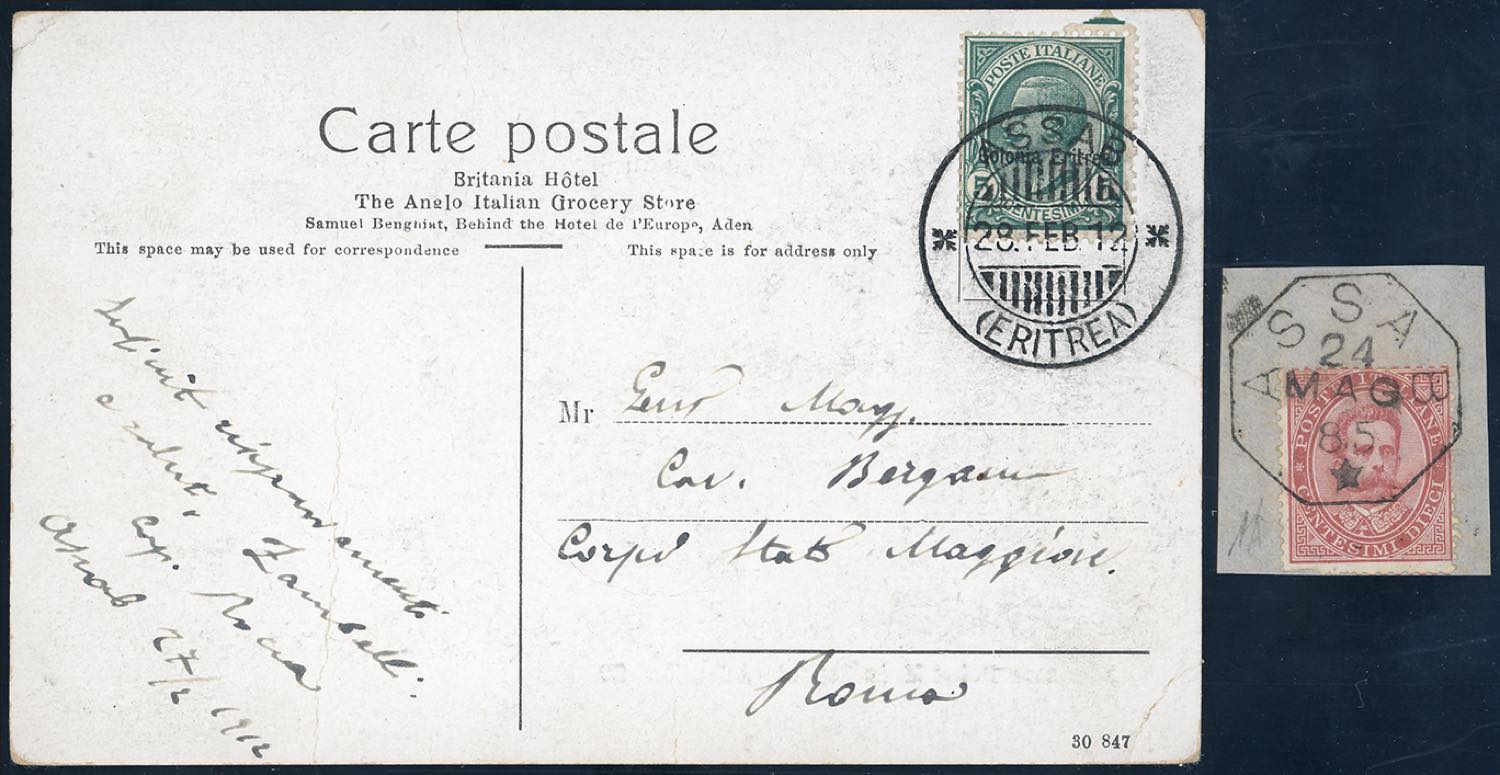 Carte postale
Britania Hôtel
The Anglo Italian Grocery Store
Samuel Benghiat, Behind the Hotel de l'Europe, Aden
This space may be used for correspondence
This space is for address only
POSTE ITALIANE
Colonia Eritrea
5 5
CENTESIMI
ASSAB
28.FEB.12
(ERITREA)
Mr Magg.
Cav. Bergam
Corpo Stato Maggiore.
Roma
Zambelli
Assab 27/2 1912
30 847
ASSAB
24
MAG
85
POSTE ITALIANE
CENTESIMI DIECI